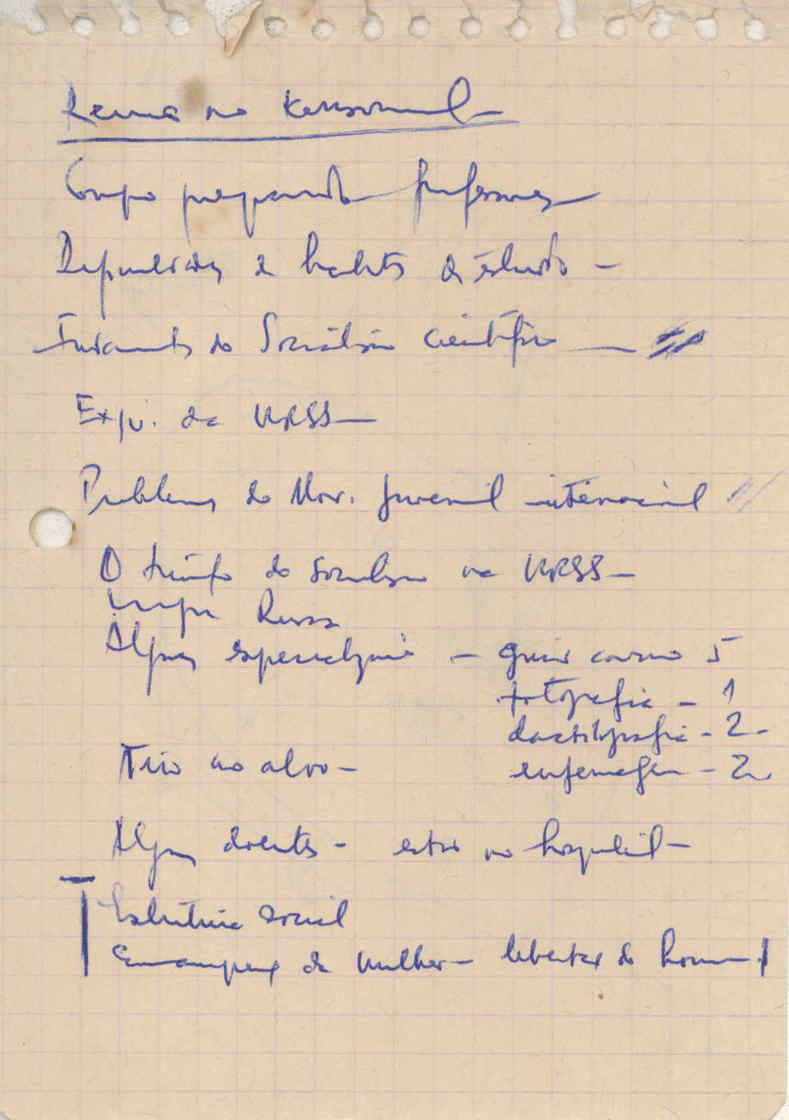 no Komsomol –
Grupo preparando professores –
de estudo –
do Socialismo Científico –
Exp. da URSS –
Problemas do Mov. juvenil internacional
O triunfo do Socialismo na URSS –
Língua Russa
Alguns – guias 5
fotografia – 1
dactilografia – 2 –
Tiro ao alvo –
enfermagem – 2
Alguns doentes – no hospital –
Estrutura social
Emancipação da mulher – do homem